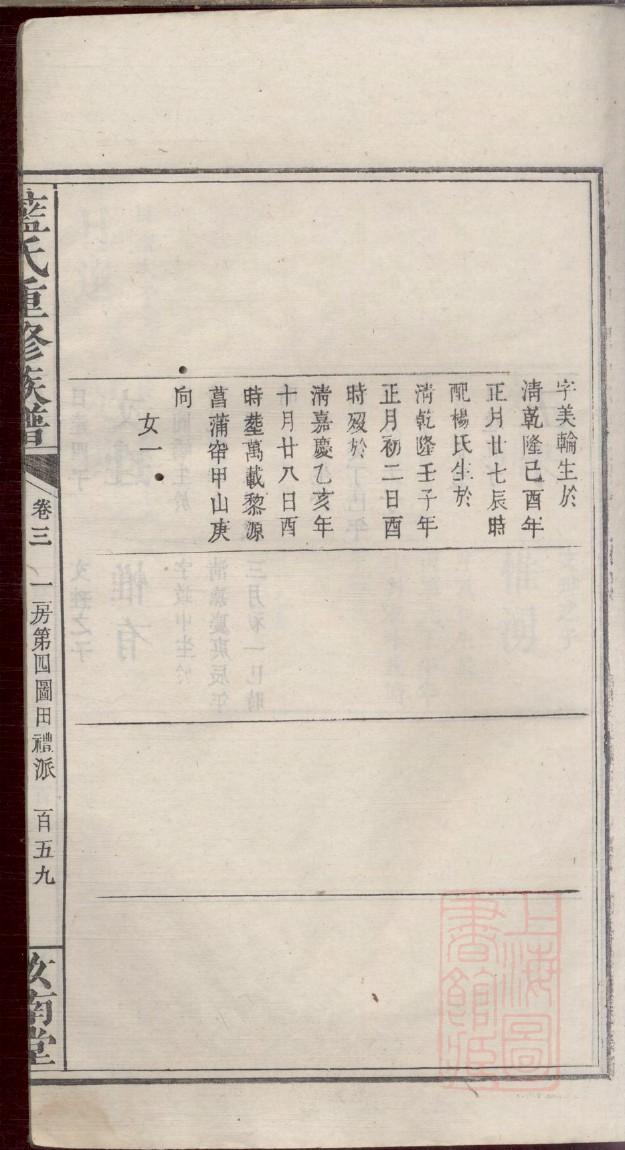 字美輪生於
清乾隆己酉年
正月廿七辰時
配楊氏生於
清乾隆壬子年
正月初二日酉
時歿於
清嘉慶乙亥年
十月廿八日酉
時塟萬載黎源
菖蒲窂甲山庚
向
女一
藍氏重修族譜
卷三
二房第四圖田禮派
百五九
汝南堂
上海圖
書館